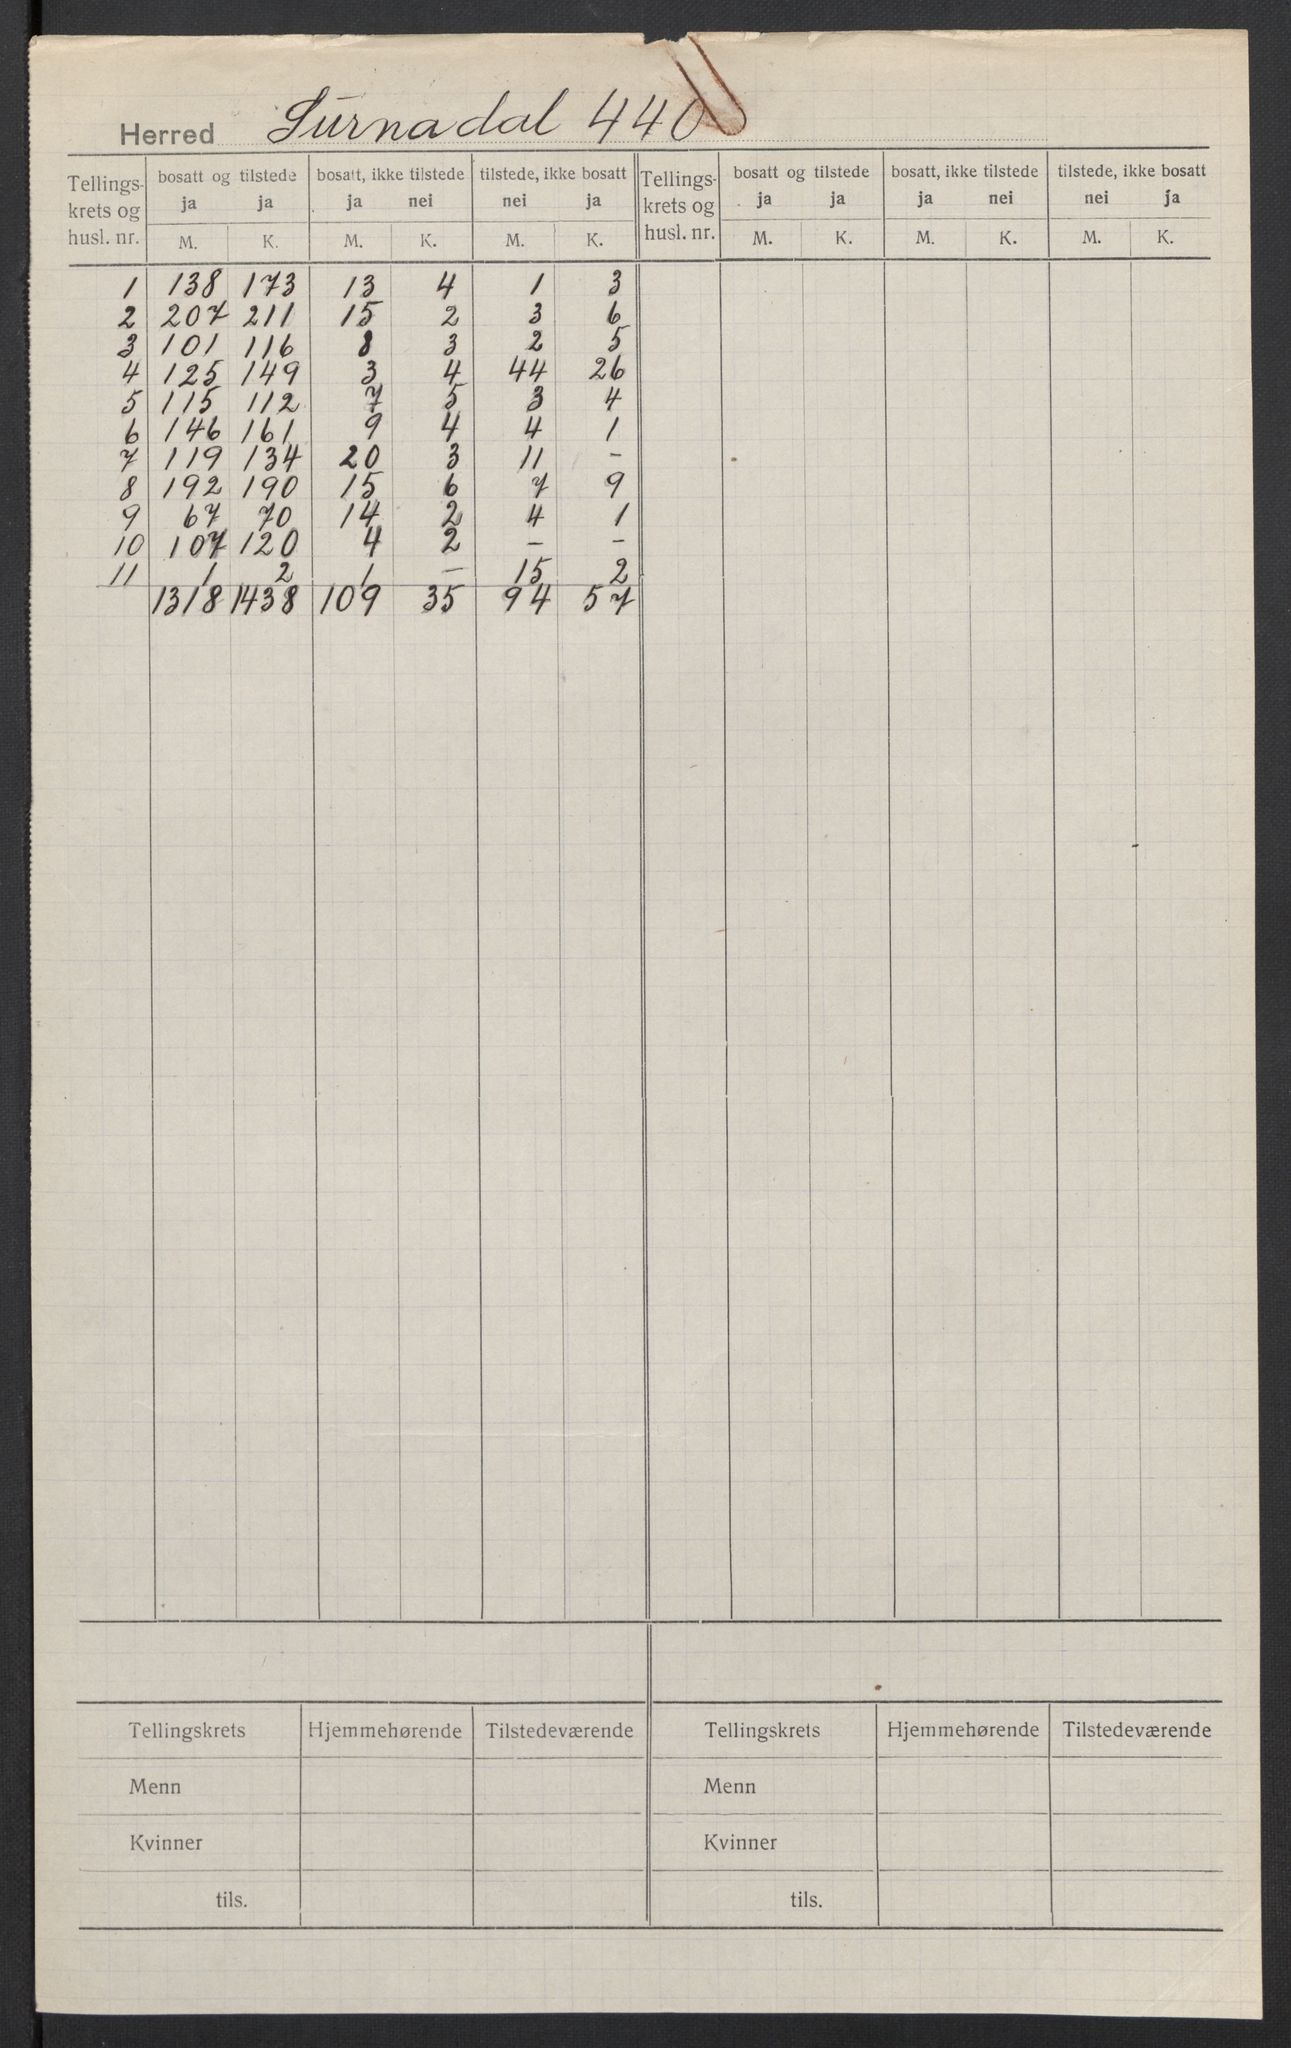 Herred Surnadal 440
Tellings- krets og husl. nr. | bosatt og tilstede | bosatt, ikke tilstede | tilstede, ikke bosatt | Tellings- krets og husl. nr. | bosatt og tilstede | bosatt, ikke tilstede | tilstede, ikke bosatt
ja ja ja nei nei ja ja ja ja nei nei ja
M. K. M. K. M. K. M. K. M. K. M. K.
1 138 173 13 4 1 3
2 207 211 15 2 3 6
3 101 116 8 3 2 5
4 125 149 3 4 44 26
5 115 112 7 5 3 4
6 146 161 9 4 4 1
7 119 134 20 3 11 –
8 192 190 15 6 7 9
9 67 70 14 2 4 1
10 107 120 4 2 – –
11 1 2 1 – 15 2
1318 1438 109 35 94 57
Tellingskrets Hjemmehørende Tilstedeværende Tellingskrets Hjemmehørende Tilstedeværende
Menn Menn
Kvinner Kvinner
tils. tils.